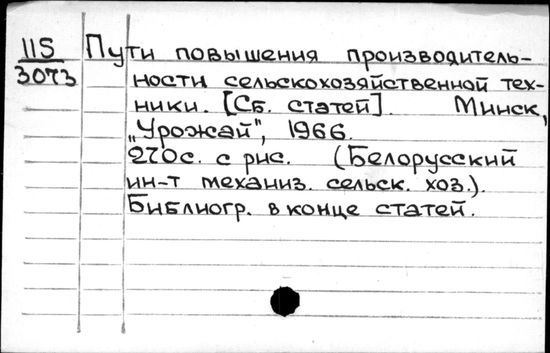 115
3073
Пути повышения производитель-
ности сельскохозяйственной тех-
ники. [Сб. статей]. Минск,
„Урожай", 1966.
270с. с рис. (Белорусский
ин-т механиз. сельск. хоз.).
Библиогр. в конце статей.